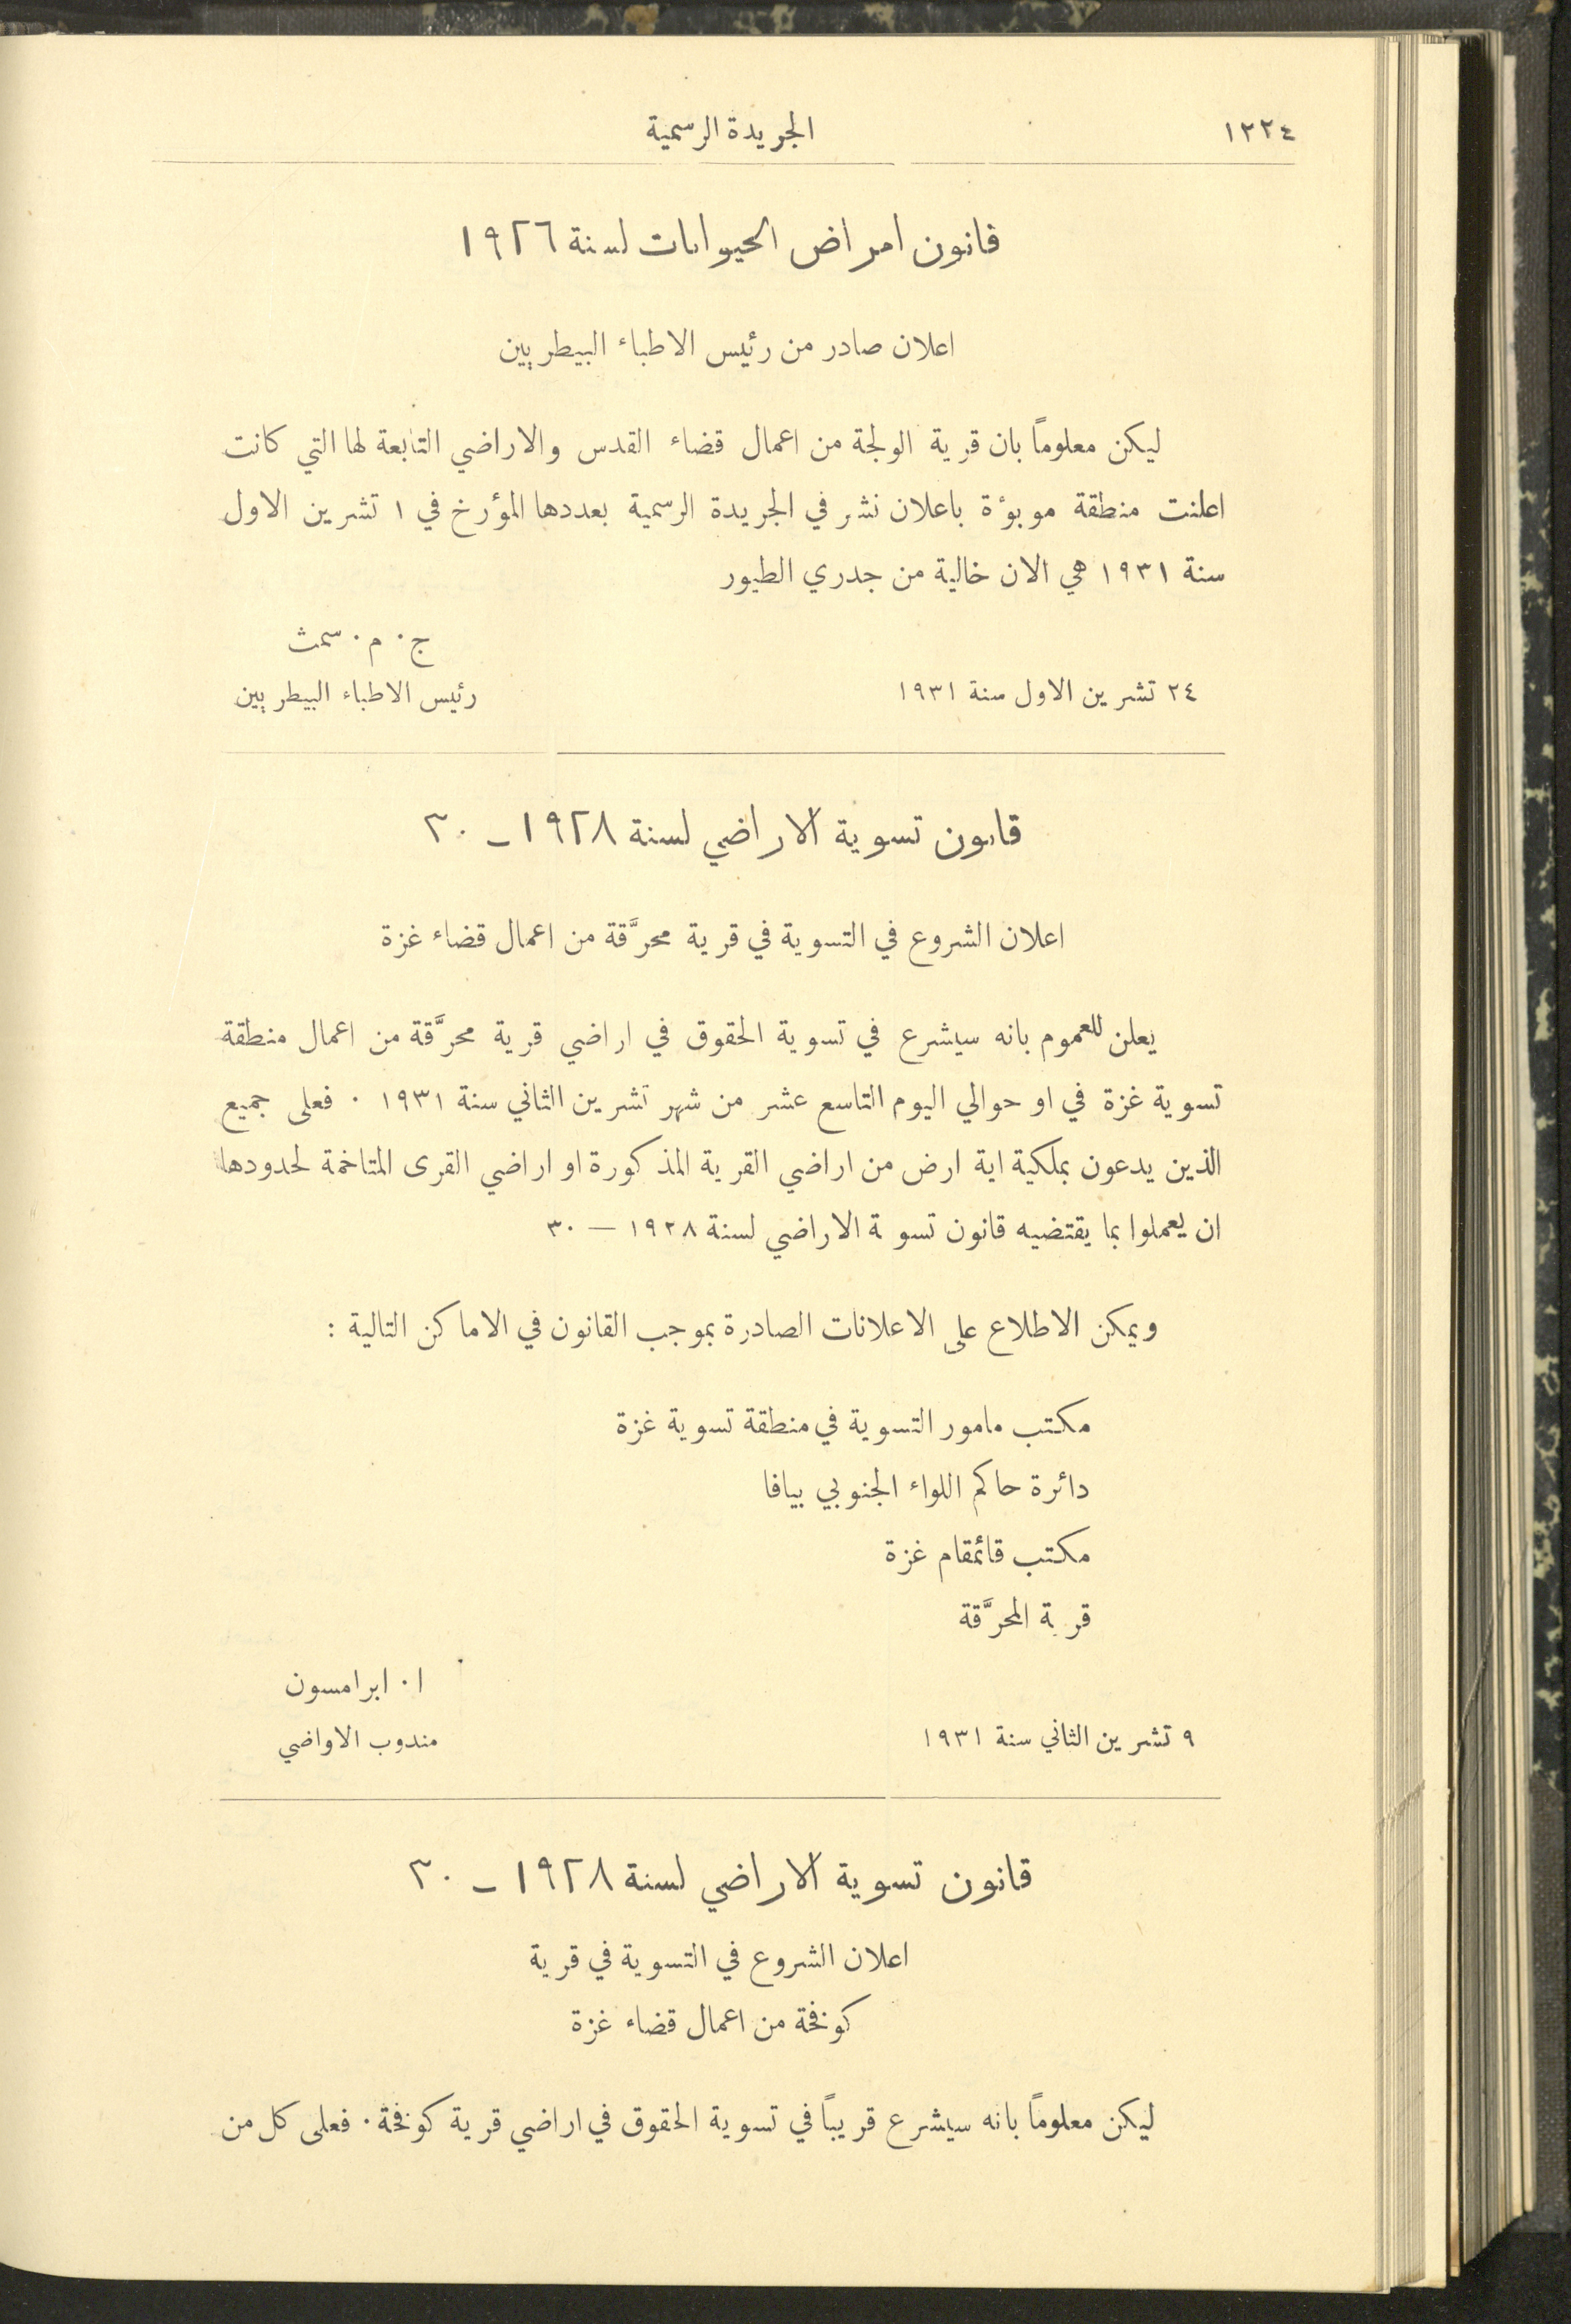 ١٢٢٤
الجريدة الرسمية
قانون امراض الحيوانات لسنة ١٩٢٦
اعلان صادر من رئيس الاطباء البيطريين
ليكن معلوماً بان قرية الولجة من اعمال قضاء القدس والاراضي التابعة لها التي كانت
اعلنت منطقة موبوْة باعلان نشر في الجريدة الرسمية بعددها المؤرخ في ١ تشرين الاول
سنة ١٩٣١ هي الان خالية من جدري الطيور
ج٠ م٠ سمث
٢٤ تشرين الاول سنة ١٩٣١
رئيس الاطباء البيطريين
قانون تسوية الاراضي لسنة ١٩٢٨ - ٣٠
اعلان الشروع في التسوية في قرية محرَّقة من اعمال قضاء غزة
يعلن للعموم بانه سيشرع في تسوية الحقوق في اراضي قرية محرَّقة من اعمال منطقة
تسوية غزة في او حوالي اليوم التاسع عشر من شهر تشرين الثاني سنة ١٩٣١ ٠ فعلى جميع
الذين يدعون بملكية اية ارض من اراضي القرية المذكورة او اراضي القرى المتاخمة لحدودها
ان يعملوا بما يقتضيه قانون تسوية الاراضي لسنة ١٩٢٨ — ٣٠
ويمكن الاطلاع على الاعلانات الصادرة بموجب القانون في الاماكن التالية :
مكتب مامور التسوية في منطقة تسوية غزة
دائرة حاكم اللواء الجنوبي بيافا
مكتب قائمقام غزة
قرية المحرَّقة
ا٠ ابرامسون
٩ تشرين الثاني سنة ١٩٣١
مندوب الاواضي
قانون تسوية الاراضي لسنة ١٩٢٨ - ٣٠
اعلان الشروع في التسوية في قرية
كوفخة من اعمال قضاء غزة
ليكن معلوماً بانه سيشرع قريباً في تسوية الحقوق في اراضي قرية كوفخة٠ فعلى كل من